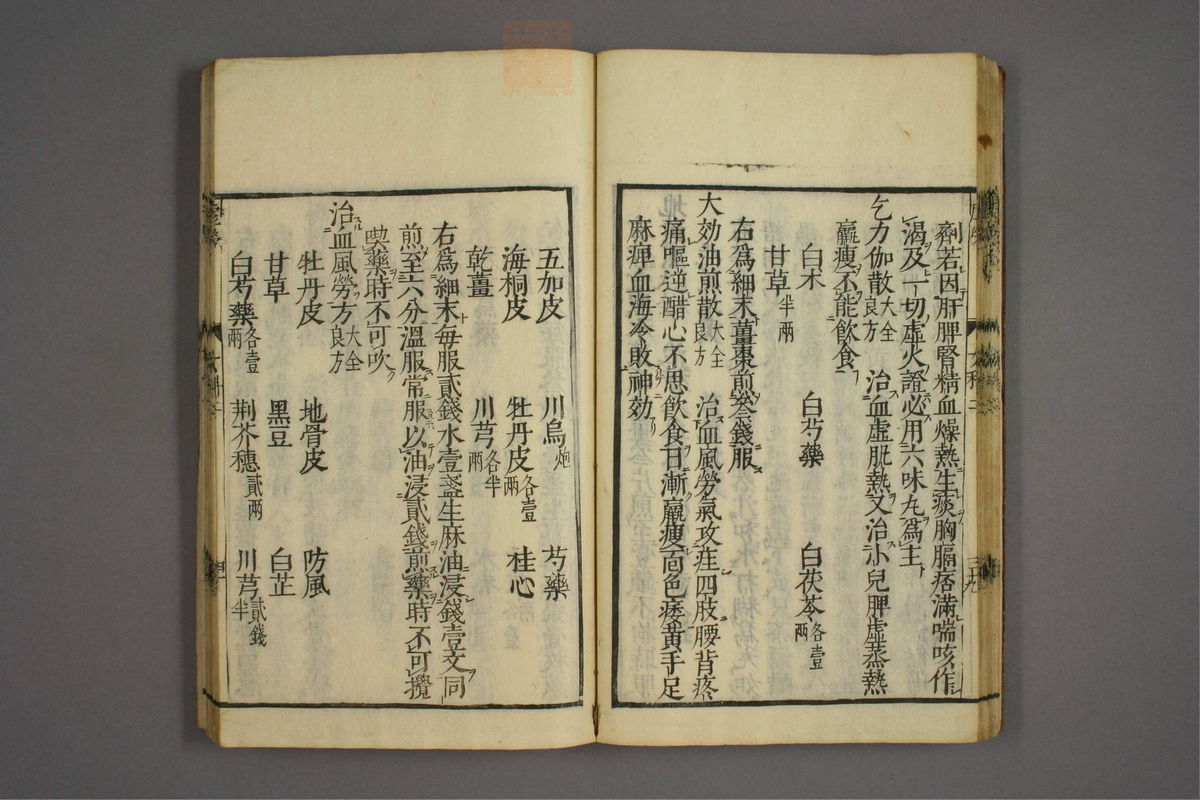 劑若因肝脾腎精血燥熱生痰胸膈痞滿喘咳作
渴及一切虛火證必用六味丸爲主
乞力伽散大全良方 治血虛肌熱又治小兒脾虛蒸熱
羸瘦不能飲食
白朮 白芍藥 白茯苓各壹兩
甘草半兩
右爲細末薑棗煎叄錢服
大効油煎散大全良方 治血風勞氣攻疰四肢腰背疼
痛嘔逆醋心不思飲食日漸羸瘦面色痿黃手足
麻痺血海冷敗神効
五加皮 川烏炮 芍藥
海桐皮 牡丹皮各壹兩 桂心
乾薑 川芎各半兩
右爲細末每服貳錢水壹盞生麻油浸錢壹文同
煎至六分溫服常服以油浸貳錢煎藥時不可攪
喫藥時不可吹
治血風勞方大全良方
牡丹皮 地骨皮 防風
甘草 黑豆 白芷
白芍藥各壹兩 荆芥穗貳兩 川芎貳錢半